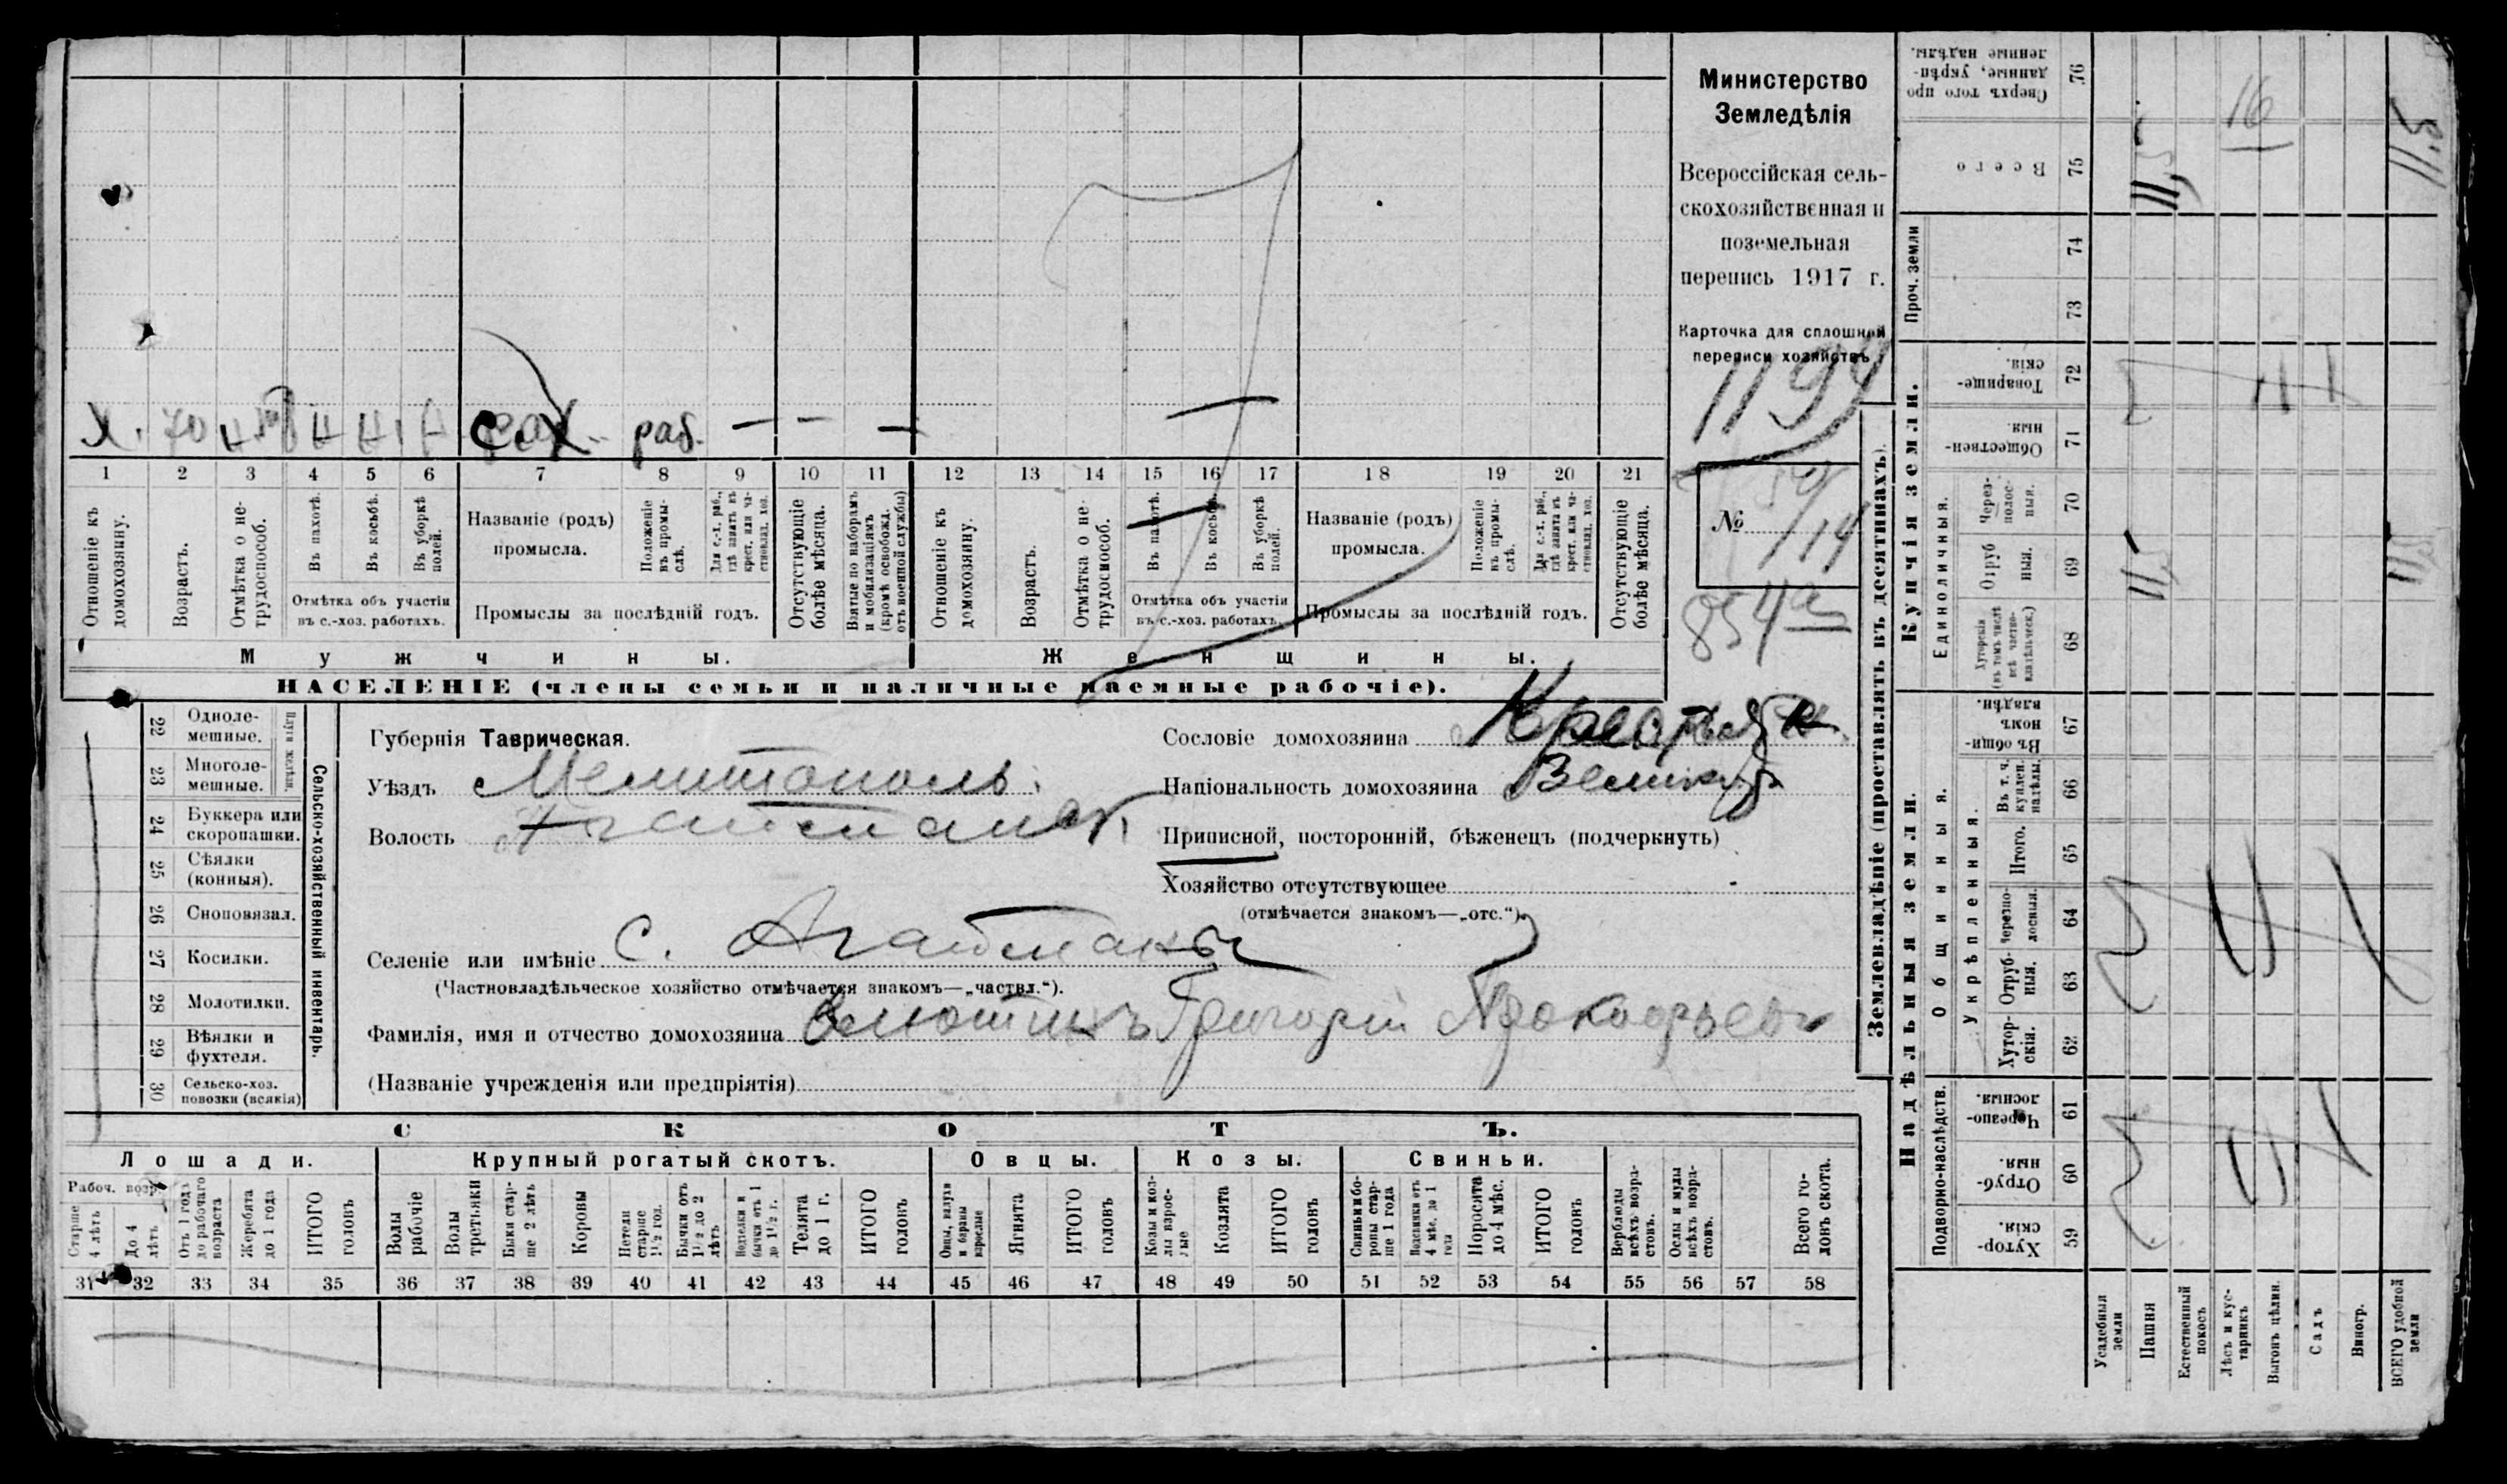 Министерство
Земледѣлія
Всероссійская сель-
скохозяйственная и
поземельная
перепись 1917 г.
Карточка для сплошной
переписи хозяйствъ
1199
№ 14
854
х. 70 с.х. раб. — — —
1 2 3 4 5 6 7 8 9 10 11 12 13 14 15 16 17 18 19 20 21
Отношеніе къ домохозяину.
Возрастъ.
Отмѣтка о не-трудоспособ.
Въ пахотѣ.
Въ косьбѣ.
Въ уборкѣ полей.
Отмѣтка объ участіи
въ с.-хоз. работахъ.
Названіе (родъ)
промысла.
Положеніе въ промы-слѣ.
Для с.-х. раб., гдѣ занятъ въ крест. или ча-стновлад. хоз.
Промыслы за послѣдній годъ.
Отсутствующіе болѣе мѣсяца.
Взятые по наборамъ и мобилизаціямъ (кромѣ освобожд. отъ военной службы)
Отношеніе къ домохозяину.
Возрастъ.
Отмѣтка о не-трудоспособ.
Въ пахотѣ.
Въ косьбѣ.
Въ уборкѣ полей.
Отмѣтка объ участіи
въ с.-хоз. работахъ.
Названіе (родъ)
промысла.
Положеніе въ промы-слѣ.
Для с.-х. раб., гдѣ занятъ въ крест. или ча-стновлад. хоз.
Промыслы за послѣдній годъ.
Отсутствующіе болѣе мѣсяца.
Мужчины.
Женщины.
НАСЕЛЕНІЕ (члены семьи и наличные наемные рабочіе).
Губернія Таврическая.
Уѣздъ Мелитополь.
Волость
Селеніе или имѣніе с. Агайманы
(Частновладѣльческое хозяйство отмѣчается знакомъ—„частвл.“).
Фамилія, имя и отчество домохозяина Григорій Прокофьевъ
(Названіе учрежденія или предпріятія)
Сословіе домохозяина Крестьян.
Національность домохозяина Велик
Приписной, посторонній, бѣженецъ (подчеркнуть)
Хозяйство отсутствующее
(отмѣчается знакомъ—„отс.“).
Сельско-хозяйственный инвентарь.
Плуги желѣзн.
22 Одноле-мешные.
23 Многоле-мешные.
24 Буккера или скоропашки.
25 Сѣялки (конныя).
26 Сноповязал.
27 Косилки.
28 Молотилки.
29 Вѣялки и фухтеля.
30 Сельско-хоз. повозки (всякія)
СКОТЪ.
Лошади. Крупный рогатый скотъ. Овцы. Козы. Свиньи.
Рабоч. возр.
Старше 4 лѣтъ
До 4 лѣтъ
Отъ 1 года до рабочаго возраста
Жеребята до 1 года
ИТОГО головъ
Волы рабочіе
Волы третьяки
Быки стар-ше 2 лѣтъ
Коровы
Нетели старше 1½ год.
Бычки отъ 1½ до 2 лѣтъ
Нетелки и бычки отъ 1 до 1½ г.
Телята до 1 г.
ИТОГО головъ
Овцы, валухи и бараны взрослые
Ягнята
ИТОГО головъ
Козы и коз-лы взрос-лые
Козлята
ИТОГО головъ
Свиньи и бо-ровы стар-ше 1 года
Подсвинки отъ 4 мѣс. до 1 года
Поросята до 4 мѣс.
ИТОГО головъ
Верблюды всѣхъ возра-стовъ.
Ослы и мулы всѣхъ возра-стовъ.
Всего го-ловъ скота.
31 32 33 34 35 36 37 38 39 40 41 42 43 44 45 46 47 48 49 50 51 52 53 54 55 56 57 58
Землевладѣніе (проставлять въ десятинахъ).
Надѣльныя земли.
Купчія земли.
Подворно-наслѣдств.
Общинныя.
Укрѣпленныя.
Единоличныя.
Проч. земли
Сверхъ того про данные, укрѣп-ленные надѣлы. 76
Всего 75
74
73
Товарище-скія. 72
Обществен-ныя. 71
Через-полос-ныя. 70
Отруб ныя. 69
Хуторскія (въ томъ числѣ всѣ частно-владѣльческ.) 68
Въ общи-номъ владѣн. 67
Въ т. ч. куплен. надѣлы. 66
Итого. 65
Черезпо-лосныя. 64
Отруб-ныя. 63
Хутор-скія. 62
Черезпо-лосныя. 61
Отруб-ныя. 60
Хутор-скія. 59
Усадебныя земли
Пашня
Естественный покосъ
Лѣсъ и кус-тарникъ
Выгонъ цѣлин.
Садъ
Виногр.
ВСЕГО удобной земли
16
11,5
11,5
11,5
11,5